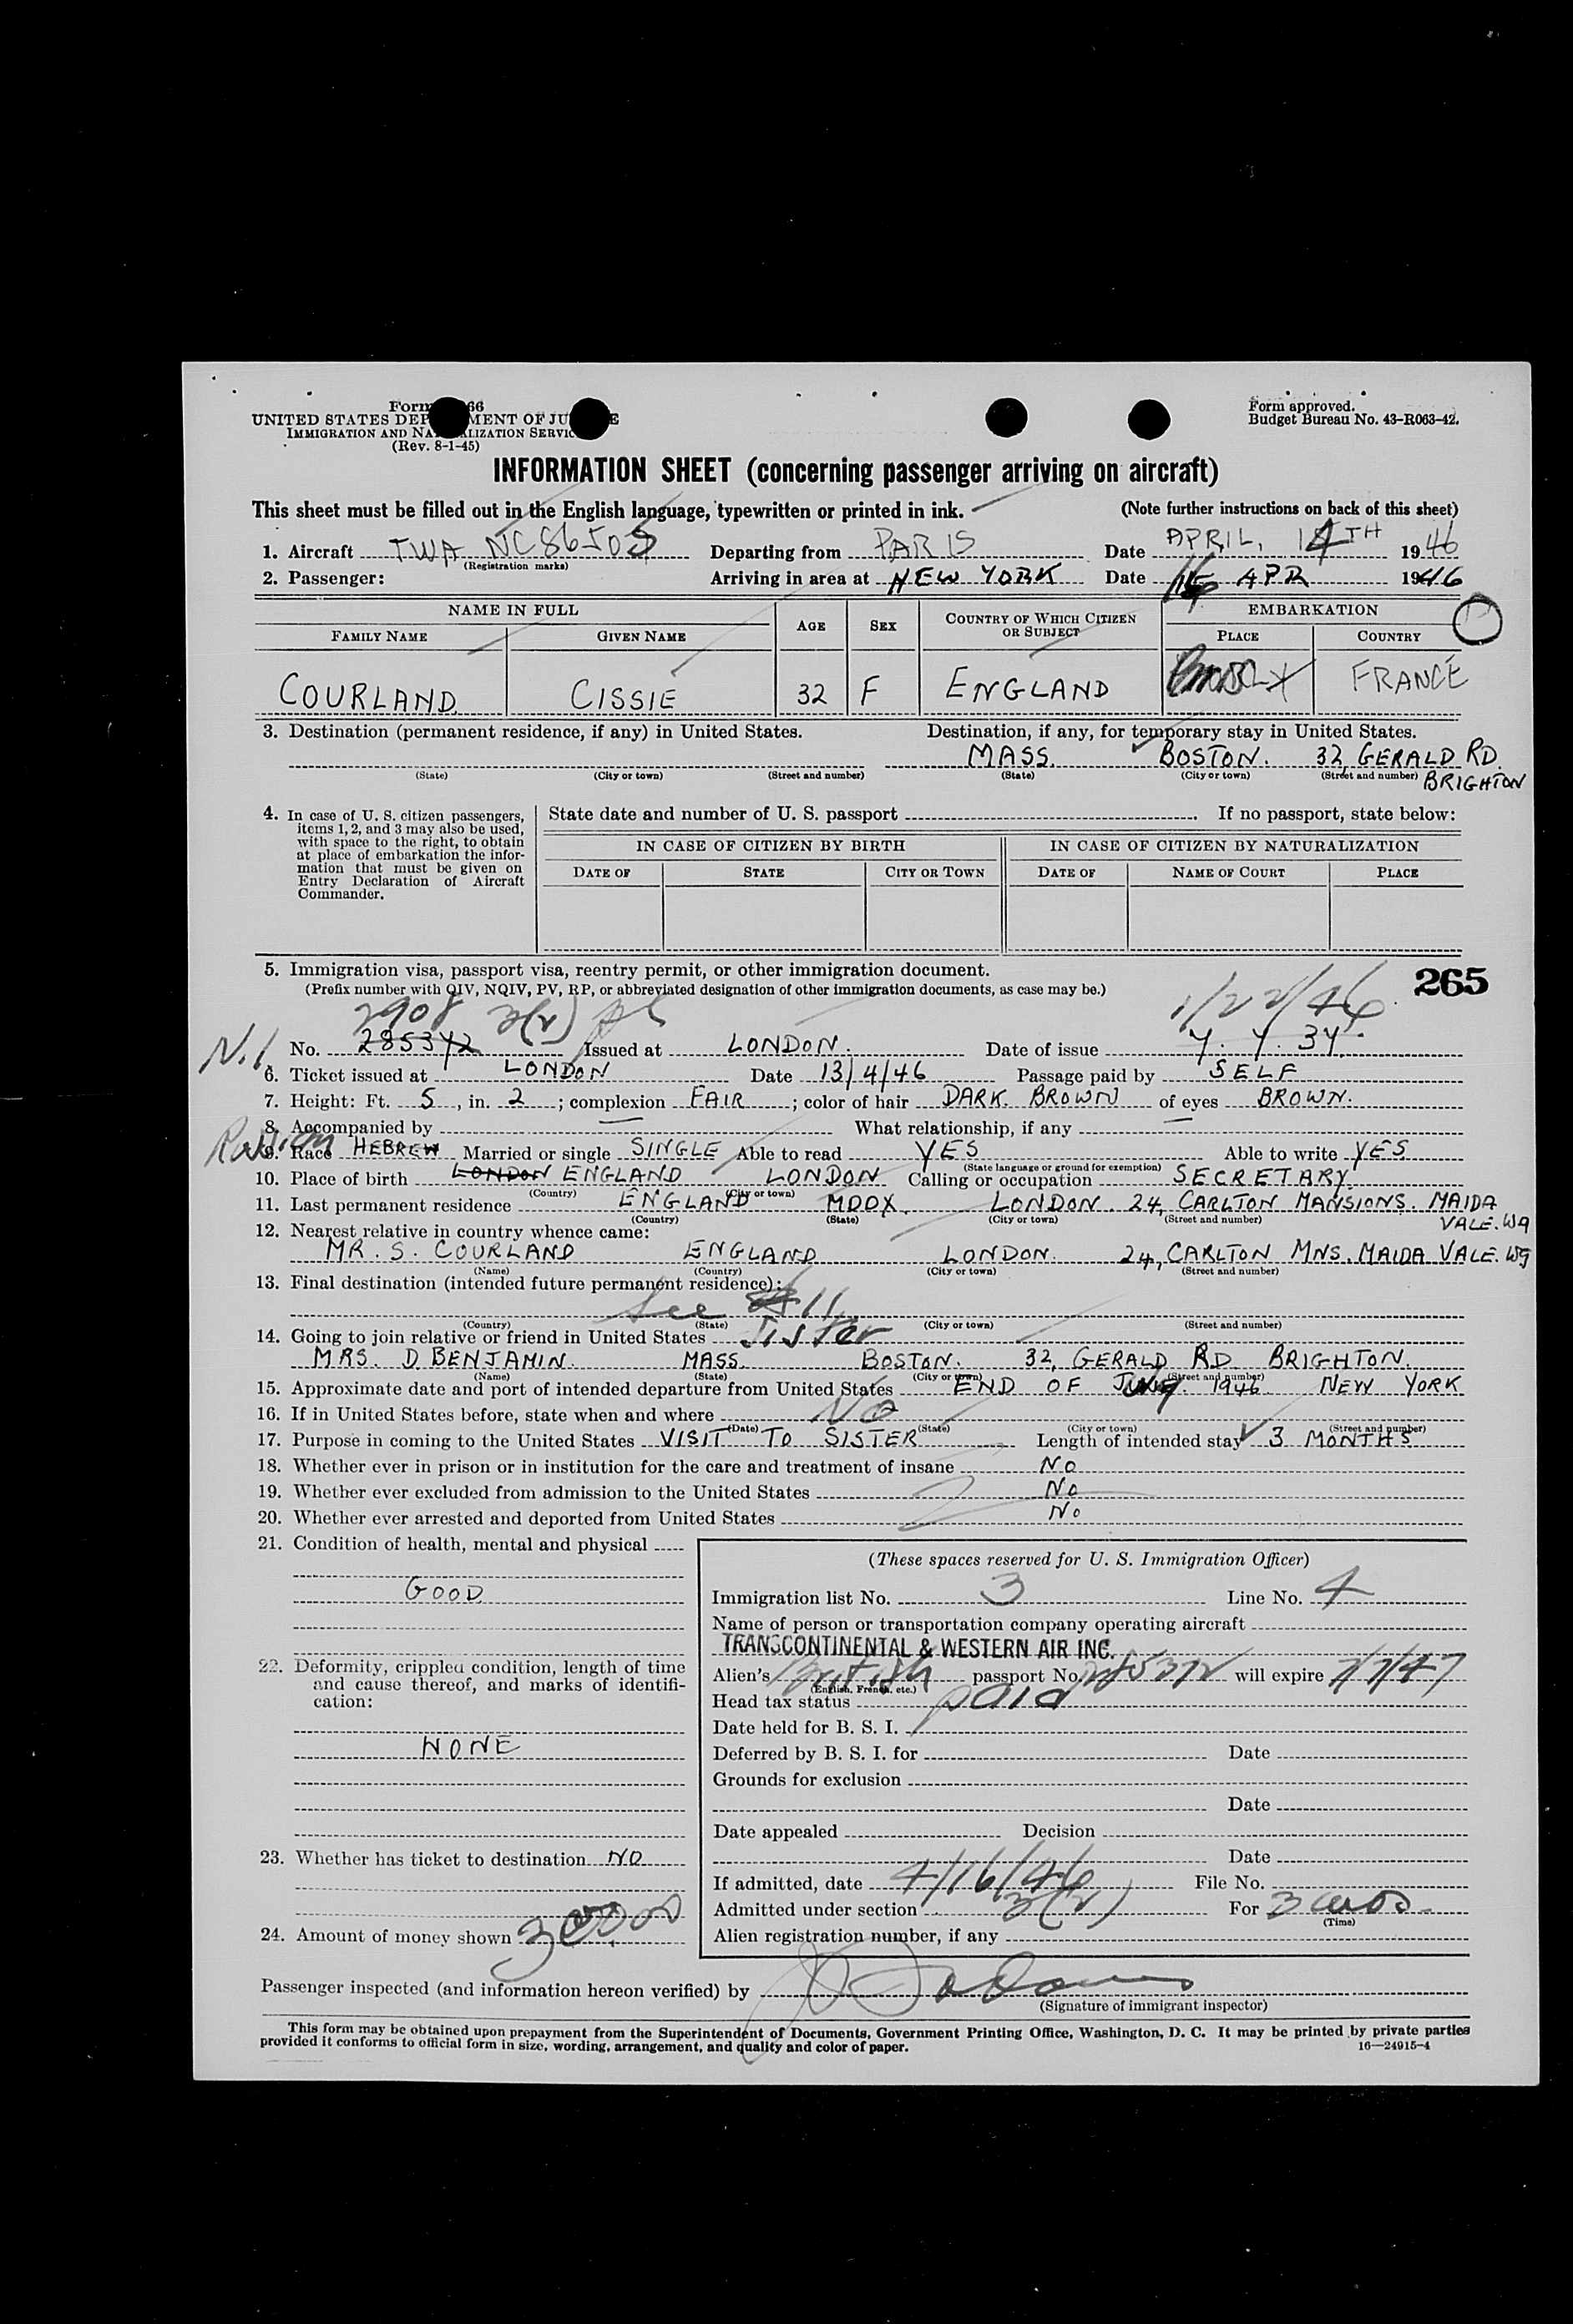 UNITED STATES DEP MENT OF JU E
IMMIGRATION AND NA LIZATION SERVIC
(Rev. 8-1-45)
Form approved.
Budget Bureau No. 43-R063-42.
INFORMATION SHEET (concerning passenger arriving on aircraft)
This sheet must be filled out in the English language, typewritten or printed in ink. (Note further instructions on back of this sheet)
1. Aircraft TWA NC86505 Departing from PARIS Date APRIL, 14TH 1946
(Registration marks)
2. Passenger: Arriving in area at NEW YORK Date 16 APR 1946
NAME IN FULL AGE SEX COUNTRY OF WHICH CITIZEN OR SUBJECT EMBARKATION
FAMILY NAME GIVEN NAME PLACE COUNTRY
COURLAND CISSIE 32 F ENGLAND FRANCE
3. Destination (permanent residence, if any) in United States. Destination, if any, for temporary stay in United States.
MASS. BOSTON. 32, GERALD RD.
(State) (City or town) (Street and number) (State) (City or town) (Street and number) BRIGHTON
4. In case of U. S. citizen passengers, items 1, 2, and 3 may also be used, with space to the right, to obtain at place of embarkation the information that must be given on Entry Declaration of Aircraft Commander.
State date and number of U. S. passport . If no passport, state below:
IN CASE OF CITIZEN BY BIRTH IN CASE OF CITIZEN BY NATURALIZATION
DATE OF STATE CITY OR TOWN DATE OF NAME OF COURT PLACE
5. Immigration visa, passport visa, reentry permit, or other immigration document. 265
(Prefix number with QIV, NQIV, PV, RP, or abbreviated designation of other immigration documents, as case may be.)
2908 3(2) 1/22/46
No. 285372 Issued at LONDON. Date of issue 7. 7. 37.
6. Ticket issued at LONDON Date 13/4/46 Passage paid by SELF
7. Height: Ft. 5, in. 2; complexion FAIR; color of hair DARK BROWN of eyes BROWN.
8. Accompanied by — What relationship, if any —
9. Race HEBREW Married or single SINGLE Able to read YES Able to write YES
(State language or ground for exemption)
10. Place of birth LONDON ENGLAND LONDON Calling or occupation SECRETARY.
(Country) (City or town)
11. Last permanent residence ENGLAND MDDX. LONDON. 24, CARLTON MANSIONS. MAIDA
(Country) (State) (City or town) (Street and number) VALE. W9
12. Nearest relative in country whence came:
MR. S. COURLAND ENGLAND LONDON. 24, CARLTON MNS. MAIDA VALE. W9
(Name) (Country) (City or town) (Street and number)
13. Final destination (intended future permanent residence):
See 11
(Country) (State) (City or town) (Street and number)
14. Going to join relative or friend in United States Sister
MRS. D. BENJAMIN. MASS. BOSTON. 32, GERALD RD. BRIGHTON.
(Name) (State) (City or town) (Street and number)
15. Approximate date and port of intended departure from United States END OF 1946 NEW YORK
16. If in United States before, state when and where NO
(Date) (State) (City or town) (Street and number)
17. Purpose in coming to the United States VISIT TO SISTER Length of intended stay 3 MONTHS
18. Whether ever in prison or in institution for the care and treatment of insane NO
19. Whether ever excluded from admission to the United States NO
20. Whether ever arrested and deported from United States NO
21. Condition of health, mental and physical
GOOD
22. Deformity, crippled condition, length of time and cause thereof, and marks of identification:
NONE
23. Whether has ticket to destination NO
24. Amount of money shown
(These spaces reserved for U. S. Immigration Officer)
Immigration list No. 3 Line No. 4
Name of person or transportation company operating aircraft
TRANSCONTINENTAL & WESTERN AIR INC.
Alien's British passport No. 285372 will expire 7/7/47
(English, French, etc.)
Head tax status paid
Date held for B. S. I.
Deferred by B. S. I. for Date
Grounds for exclusion
Date
Date appealed Decision
Date
If admitted, date 4/16/46 File No.
Admitted under section 3(2) For 3 mos.
(Time)
Alien registration number, if any
Passenger inspected (and information hereon verified) by
(Signature of immigrant inspector)
This form may be obtained upon prepayment from the Superintendent of Documents, Government Printing Office, Washington, D. C. It may be printed by private parties
provided it conforms to official form in size, wording, arrangement, and quality and color of paper. 16—24915-4